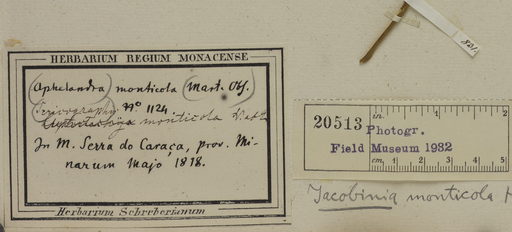 HERBARIUM REGIUM MONACENSE
(Aphelandra) monticola (Mart. Obs.)
No 1124.
monticola
In M. Serra do Caraça, prov. Mi-
narum Majo 1818.
Herbarium Schreberianum
in. 1 2
20513 Photogr.
Field Museum 1982
cm. 1 2 3 4 5
Jacobinia monticola